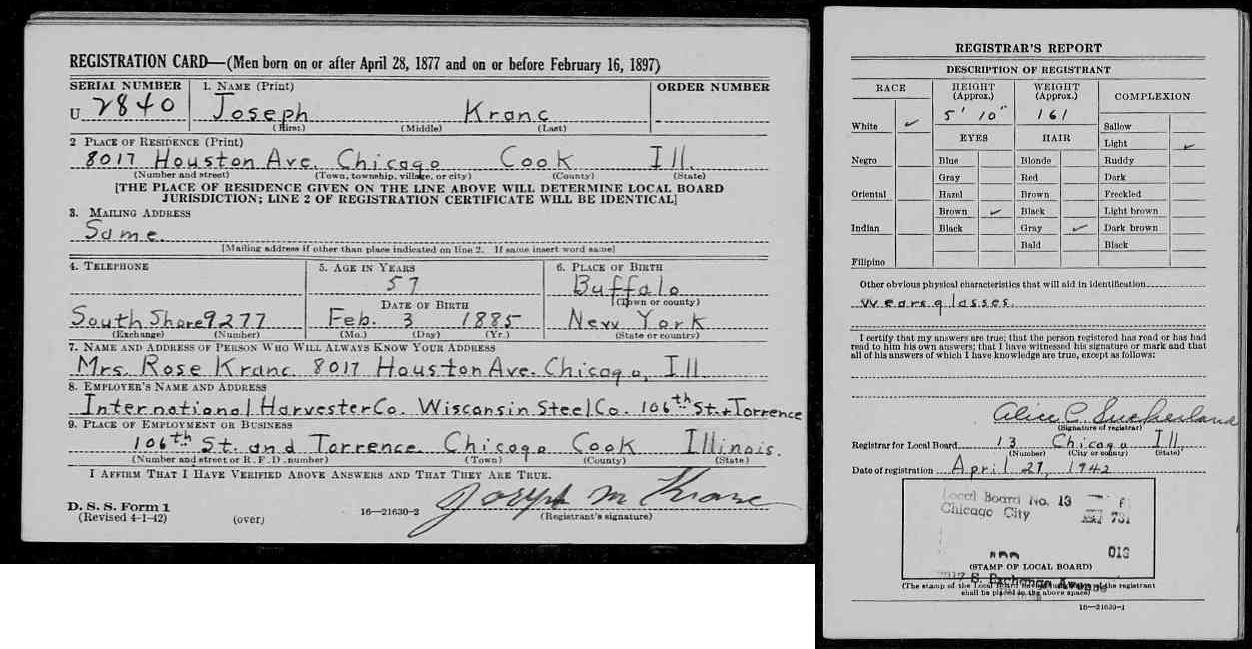 REGISTRATION CARD—(Men born on or after April 28, 1877 and on or before February 16, 1897)
SERIAL NUMBER 1. NAME (Print) ORDER NUMBER
U 2840 Joseph Kranc
(First) (Middle) (Last)
2 PLACE OF RESIDENCE (Print)
8017 Houston Ave. Chicago Cook Ill.
(Number and street) (Town, township, village, or city) (County) (State)
[THE PLACE OF RESIDENCE GIVEN ON THE LINE ABOVE WILL DETERMINE LOCAL BOARD
JURISDICTION; LINE 2 OF REGISTRATION CERTIFICATE WILL BE IDENTICAL]
3. MAILING ADDRESS
Same
[Mailing address if other than place indicated on line 2. If same insert word same]
4. TELEPHONE 5. AGE IN YEARS 6. PLACE OF BIRTH
57 Buffalo
DATE OF BIRTH (Town or county)
South Shore 9277 Feb. 3 1885 New York
(Exchange) (Number) (Mo.) (Day) (Yr.) (State or country)
7. NAME AND ADDRESS OF PERSON WHO WILL ALWAYS KNOW YOUR ADDRESS
Mrs. Rose Kranc 8017 Houston Ave. Chicago, Ill.
8. EMPLOYER'S NAME AND ADDRESS
International Harvester Co. Wisconsin Steel Co. 106th St. + Torrence
9. PLACE OF EMPLOYMENT OR BUSINESS
106th St. and Torrence Chicago Cook Illinois.
(Number and street or R. F. D. number) (Town) (County) (State)
I AFFIRM THAT I HAVE VERIFIED ABOVE ANSWERS AND THAT THEY ARE TRUE.
Joseph M Kranc
D. S. S. Form 1
(Revised 4-1-42) (over) 16—21630-2 (Registrant's signature)
REGISTRAR'S REPORT
DESCRIPTION OF REGISTRANT
RACE HEIGHT (Approx.) WEIGHT (Approx.) COMPLEXION
5' 10" 161
White ✓ Sallow
EYES HAIR Light ✓
Negro Blue Blonde Ruddy
Gray Red Dark
Oriental Hazel Brown Freckled
Brown ✓ Black Light brown
Indian Black Gray ✓ Dark brown
Bald Black
Filipino
Other obvious physical characteristics that will aid in identification
Wears glasses.
I certify that my answers are true; that the person registered has read or has had
read to him his own answers; that I have witnessed his signature or mark and that
all of his answers of which I have knowledge are true, except as follows:
Alice C. Sutherland
(Signature of registrar)
Registrar for Local Board 13 Chicago Ill.
(Number) (City or county) (State)
Date of registration April 27, 1942
Local Board No. 13
Chicago City
731
013
(STAMP OF LOCAL BOARD)
S. Exchange Avenue
(The stamp of the Local Board of the registrant
shall be placed in the above space)
16—21630-1